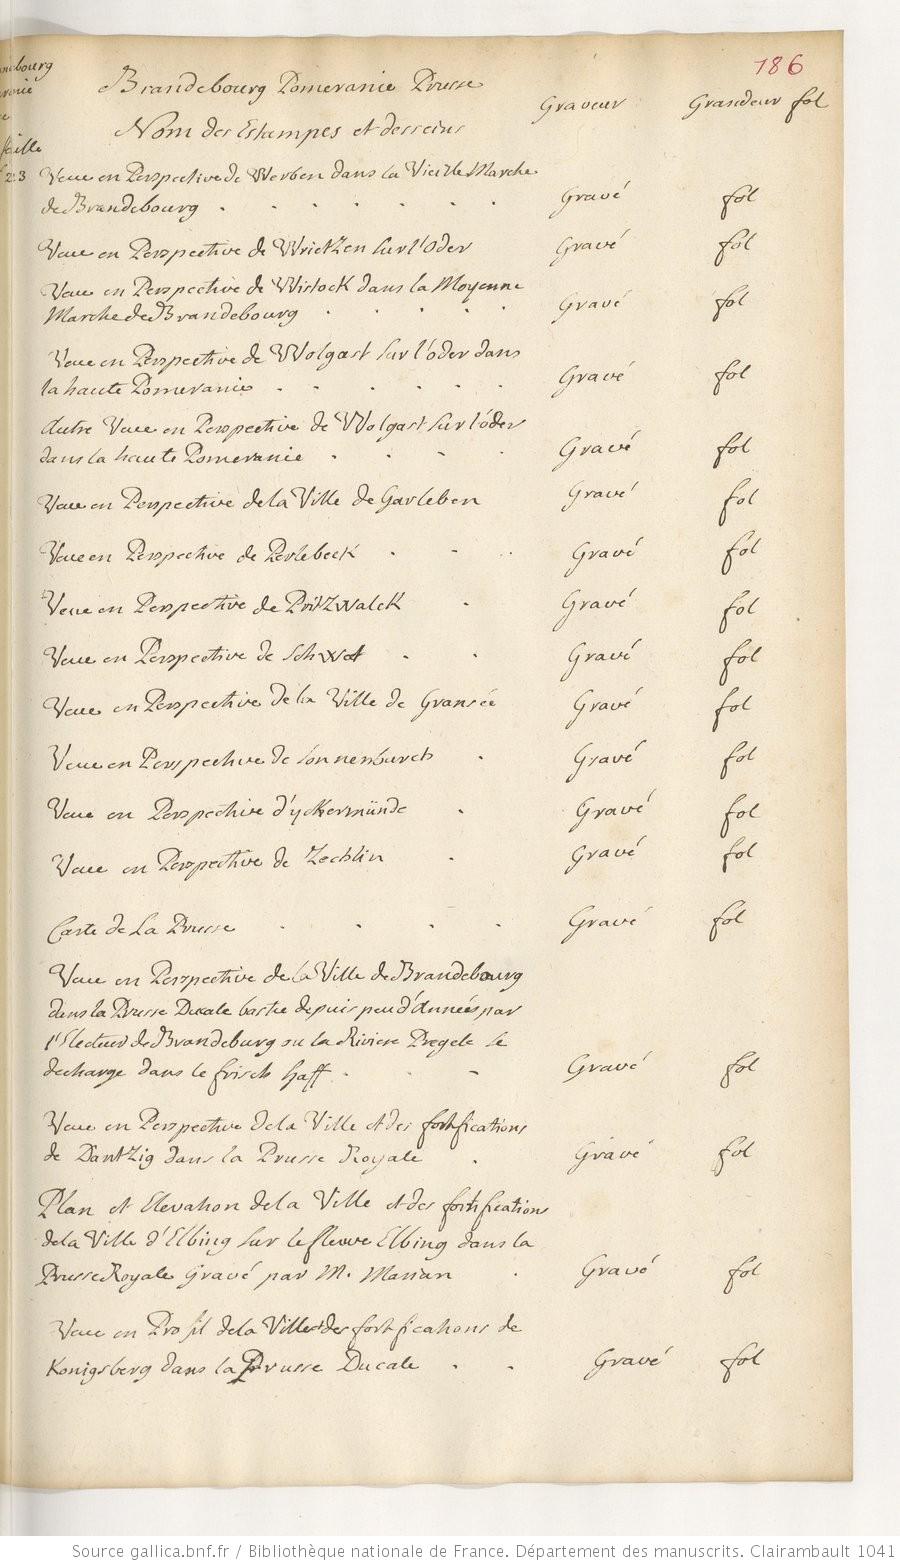 186
Brandebourg Pomeranie Prusse
Graveur Grandeur fol
Nom des Estampes et desseins
Veue en Perspective de Werben dans la Vieille Marche
de Brandebourg . . . . . . . Gravé fol
Veue en Perspective de Wrietzen sur l'oder Gravé fol
Veue en Perspective de Wistock dans la Moyenne
Marche de Brandebourg . . . . . Gravé fol
Veue en Perspective de Wolgast sur l'oder dans
la haute Pomeranie . . . . . . Gravé fol
Autre Veue en Perspective de Wolgast sur l'oder
dans la haute Pomeranie . . . . Gravé fol
Veue en Perspective de la Ville de Garleben Gravé fol
Veue en Perspective de Perlebeek . . . Gravé fol
Veue en Perspective de Pritzwalck . Gravé fol
Veue en Perspective de Schwet . . Gravé fol
Veue en Perspective de la Ville de Gransée Gravé fol
Veue en Perspective de Sonnenburch . Gravé fol
Veue en Perspective d'yckermünde . Gravé fol
Veue en Perspective de Zechlin . Gravé fol
Carte de La Prusse . . . . Gravé fol
Veue en Perspective de la Ville de Brandebourg
dans la Prusse Ducale bastie depuis peu d'années par
l'Electeur de Brandeburg ou la Riviere Pregele se
decharge dans le frisch haff . . - Gravé fol
Veue en Perspective de la Ville et des fortifications
de Dantzig dans la Prusse Royale . Gravé fol
Plan et Elevation de la Ville et des fortifications
de la Ville d'Elbing sur le fleuve Elbing dans la
Prusse Royale Gravé par M. Marian . Gravé fol
Veue en Profil de la Ville et des fortifications de
Konigsberg dans la Prusse Ducale . . Gravé fol
Source gallica.bnf.fr / Bibliothèque nationale de France. Département des manuscrits. Clairambault 1041